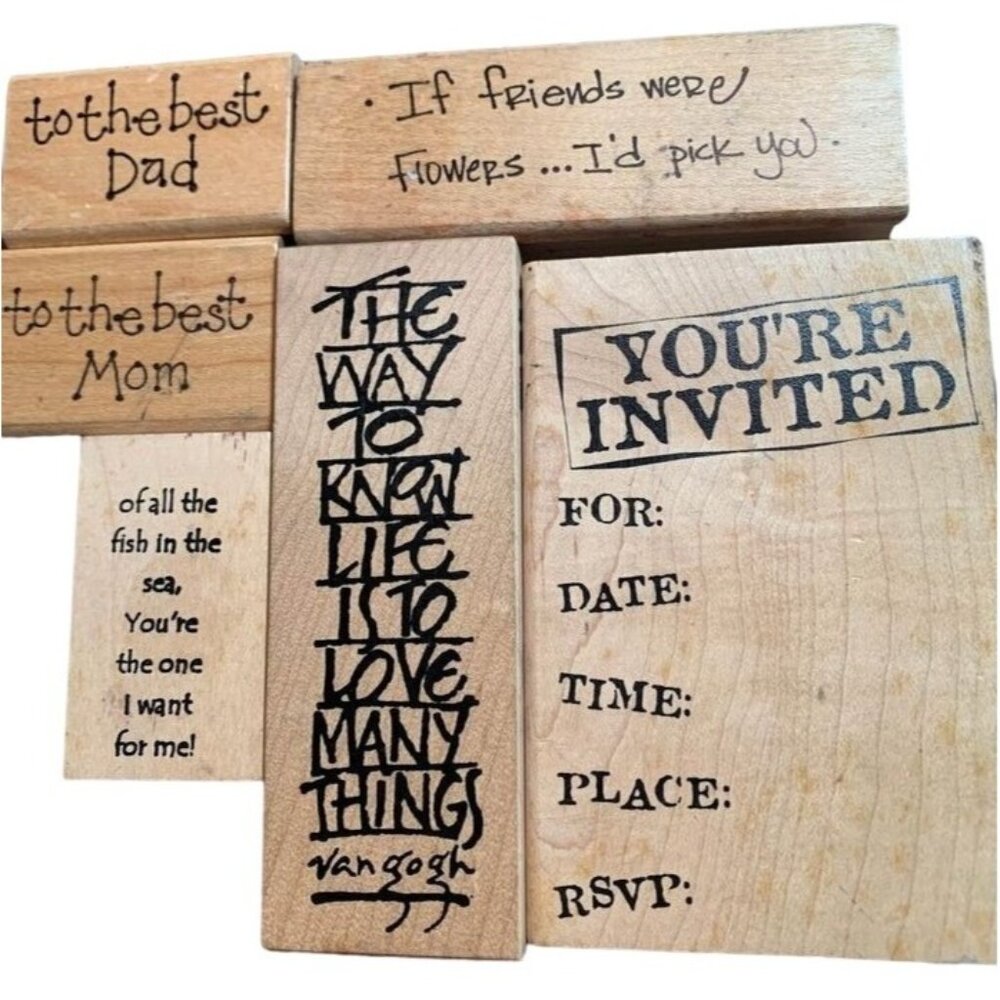 to the best
Dad
• If friends were
flowers ... I'd pick you.
to the best
Mom
of all the
fish in the
sea,
You're
the one
I want
for me!
THE
WAY
TO
KNOW
LIFE
IS TO
LOVE
MANY
THINGS
van gogh
YOU'RE
INVITED
FOR:
DATE:
TIME:
PLACE:
RSVP: